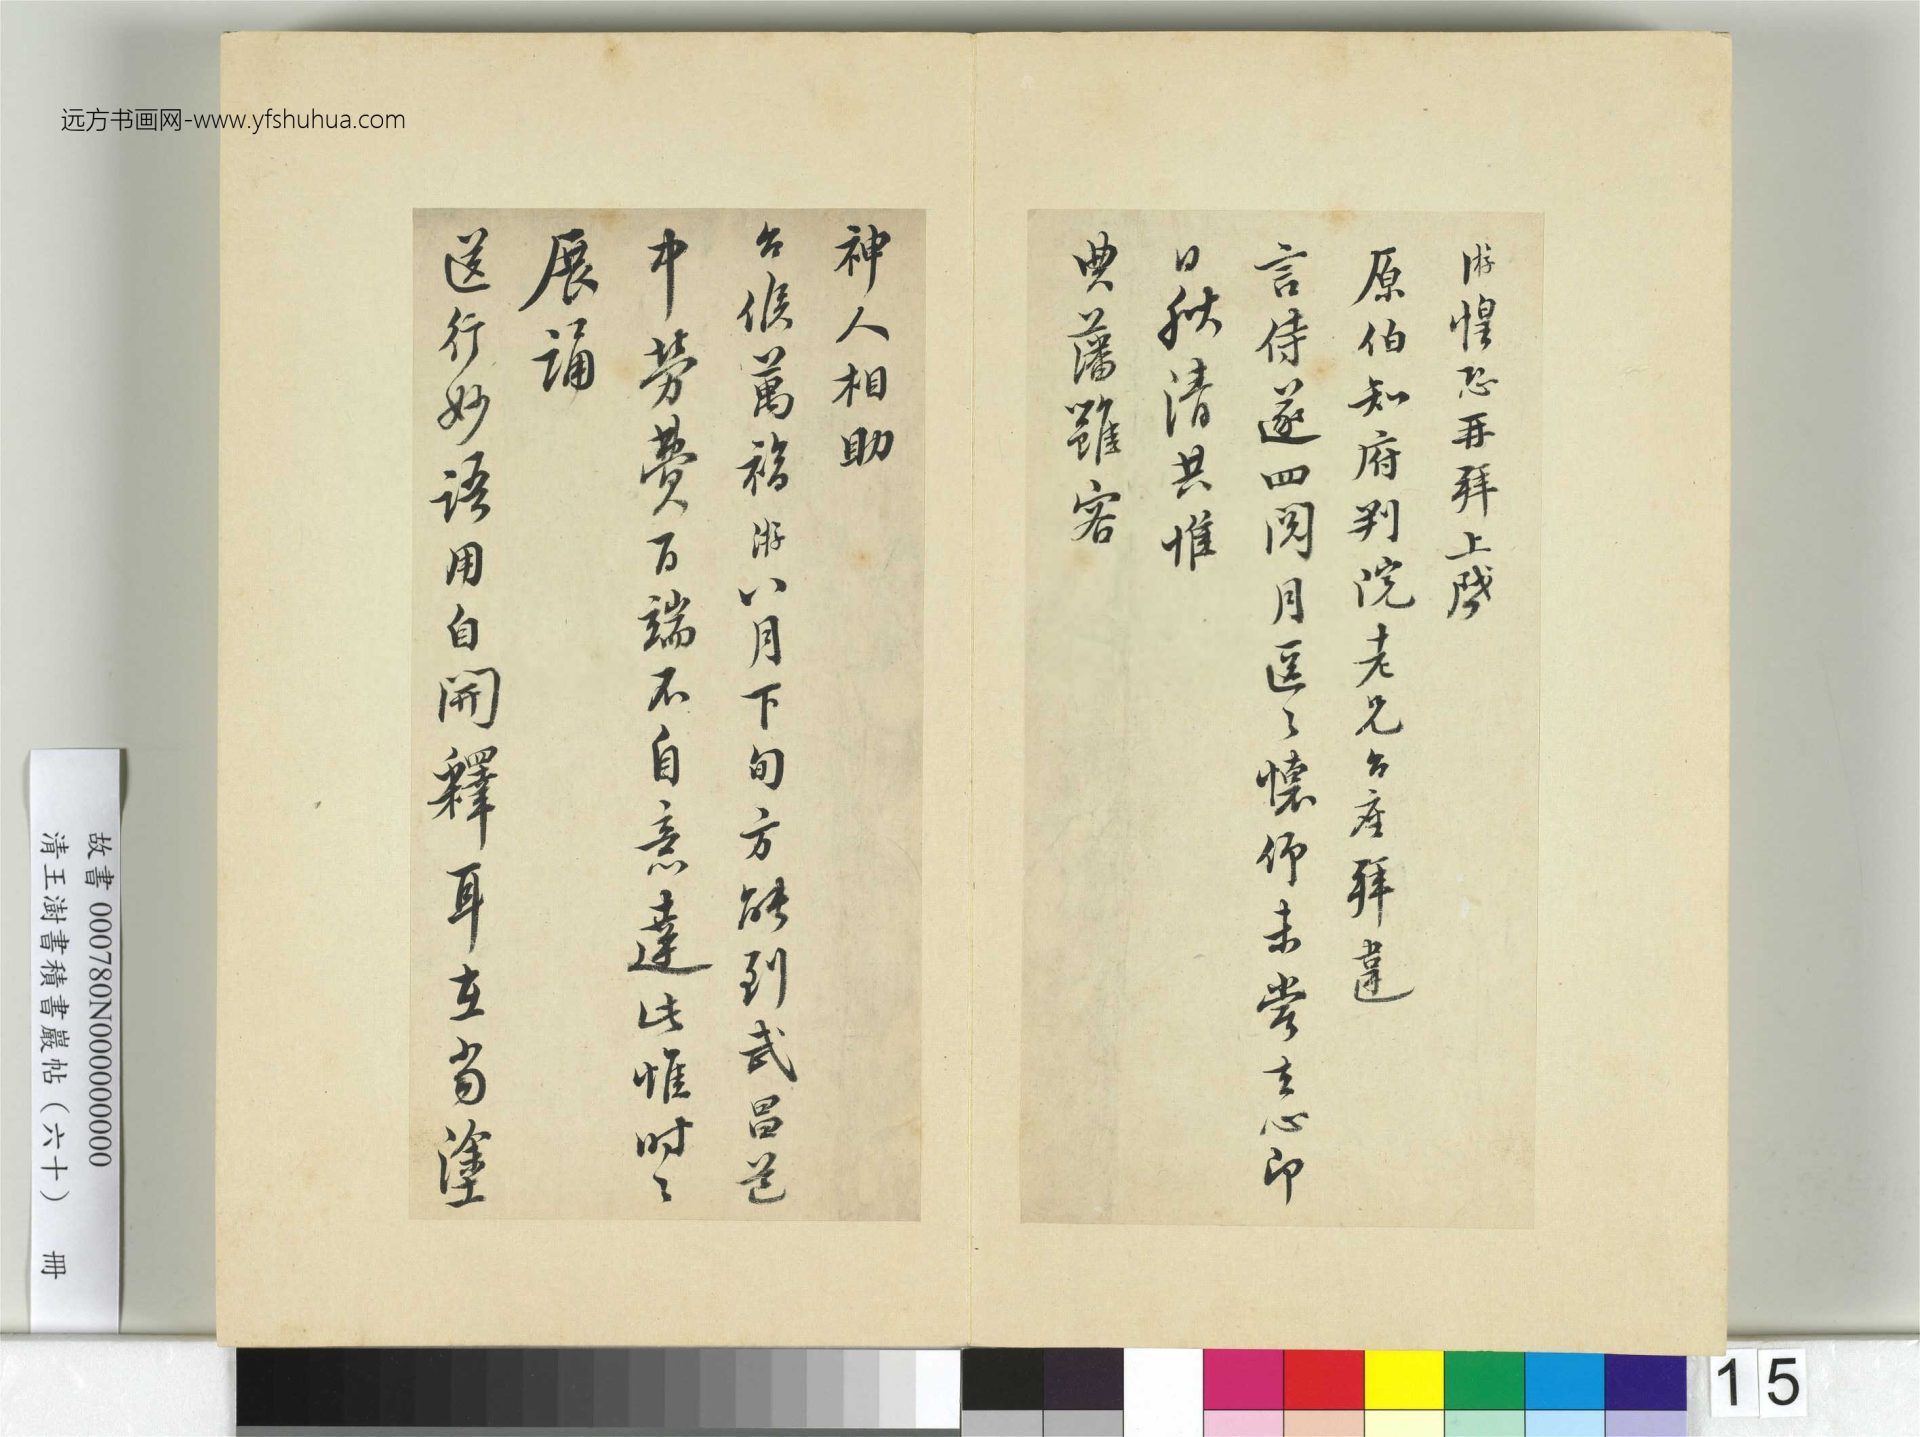 远方书画网-www.yfshuhua.com
游惶恐再拜上啓
原伯知府判院老兄台座拜違
言侍遂四閱月區〻懷仰未嘗去心即
日秋清共惟
典藩雝容
神人相助
台候萬福游八月下旬方能到武昌道
中勞費百端不自意達此惟時〻
展誦
送行妙語用自開釋耳在當塗
故書 000780N000000000
清王澍書積書巖帖(六十) 冊
15